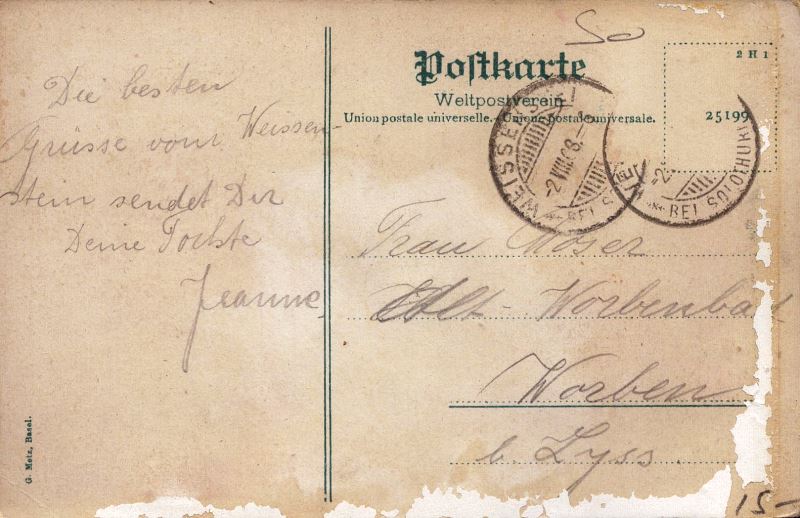 Die besten
Grüsse vom Weissen-
stein sendet Dir
Deine Tochte
Jeanne
G. Metz, Basel.
So
Postkarte
Weltpostverein
Union postale universelle. - Unione postale universale.
2 H 1
25199
WEISSENSTEIN
-2.VIII.08.-
BEI SOLOTHURN
Frau Moser
Alt-Worbenbad
Worben
b. Lyss.
15-